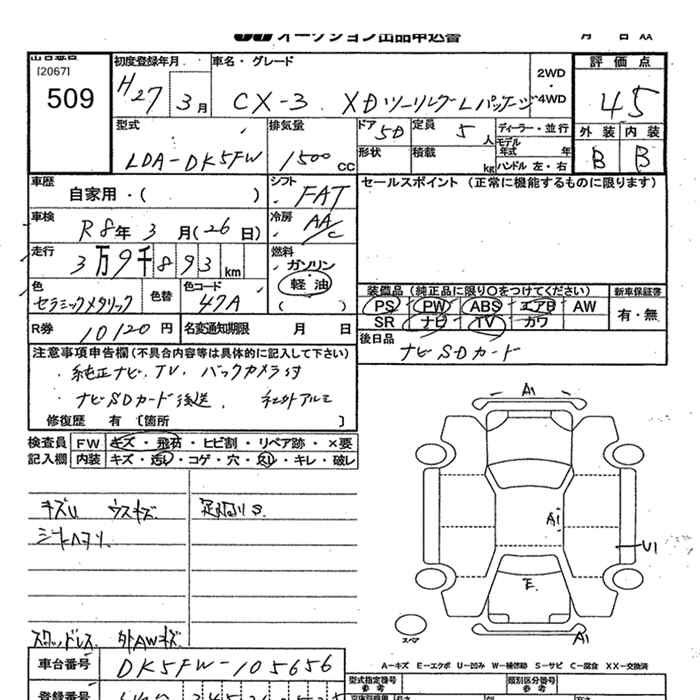 オークション出品申込書 月 日
出品番号 初度登録年月 車名・グレード 2WD 評価点
[2067]
509 H27 3月 CX-3 XDツーリングLパッケージ ・4WD 4.5
型式 排気量 ドア 5D 定員 5人 ディーラー・並行 外装 内装
LDA-DK5FW 1500cc 形状 積載 kg モデル年式 年 B B
ハンドル 左・右
車歴 自家用・( ) シフト FAT セールスポイント (正常に機能するものに限ります)
車検 R8年3月(26日) 冷房 AA/C
走行 3万9千893km 燃料 ガソリン
軽油
( )
色 セラミックメタリック 色替 色コード 47A
装備品 (純正品に限り○をつけてください) 新車保証書
PS PW ABS エアB AW 有・無
SR ナビ TV カワ
R券 10120円 名変通知期限 月 日
後日品 ナビSDカード
注意事項申告欄(不具合内容等は具体的に記入して下さい)
純正ナビ、TV、バックカメラ付
ナビSDカード後送 社外アルミ
修復歴 有 [箇所 ]
検査員 FW キズ・飛石・ヒビ割・リペア跡・×要
記入欄 内装 キズ・汚レ・コゲ・穴・スレ・キレ・破レ
A1
キズU ウスキズ 足回りS
シートヘタリ
A1
U1
E
スペア
A1
スタッドレス 外AWキズ
A-キズ E-エクボ U-凹み W-補修跡 S-サビ C-腐食 XX-交換済
車台番号 DK5FW-105656
型式指定番号 参考 類別区分番号 参考
登録番号